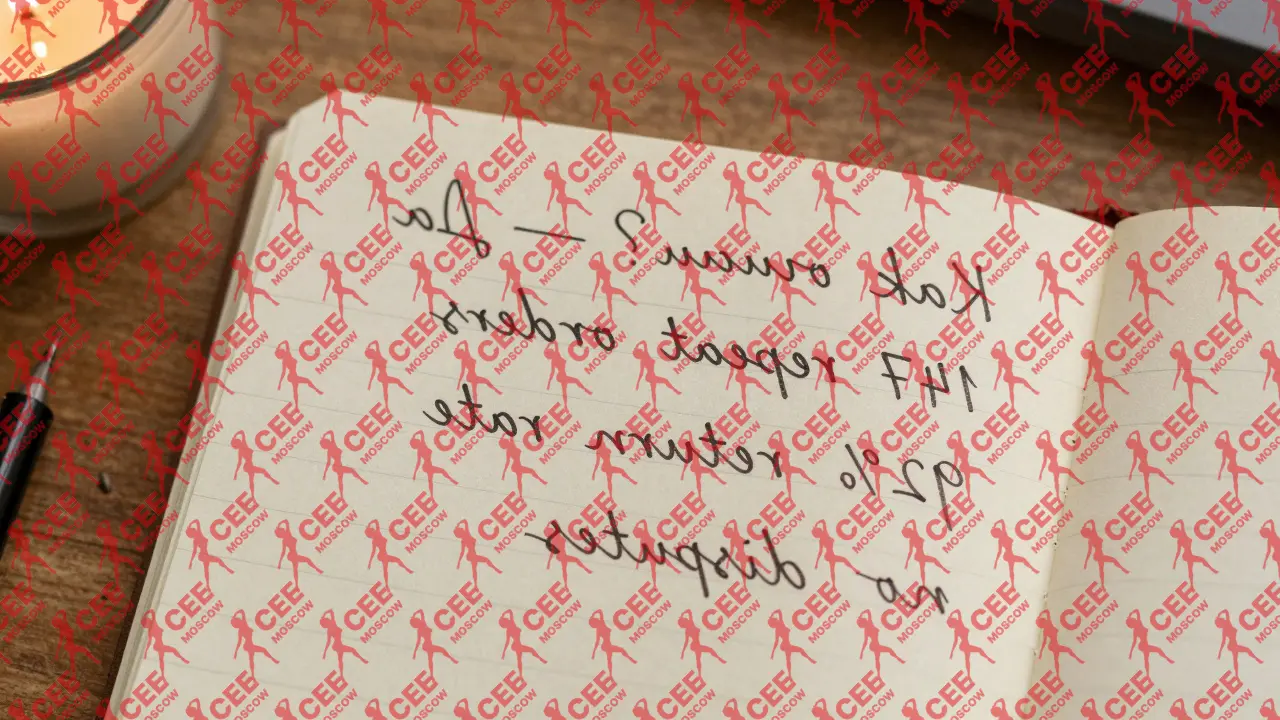 Как отиаи? — Да
147 repeat orders
92% return rate
no disputes
CEE
MOSCOW